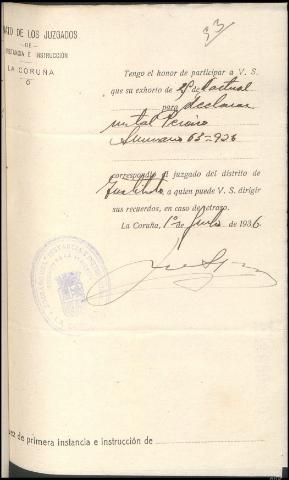 93
NATO DE LOS JUZGADOS
- DE -
INSTANCIA E INSTRUCCIÓN
LA CORUÑA
Tengo el honor de participar a V. S.
que su exhorto de actual
para declarar
un tal Pereiro
Sumario 65-936
correspondió al juzgado del distrito de
Instituto a quien puede V. S. dirigir
sus recuerdos, en caso de retraso.
La Coruña, 1º de Julio de 1936.
uez de primera instancia e instrucción de